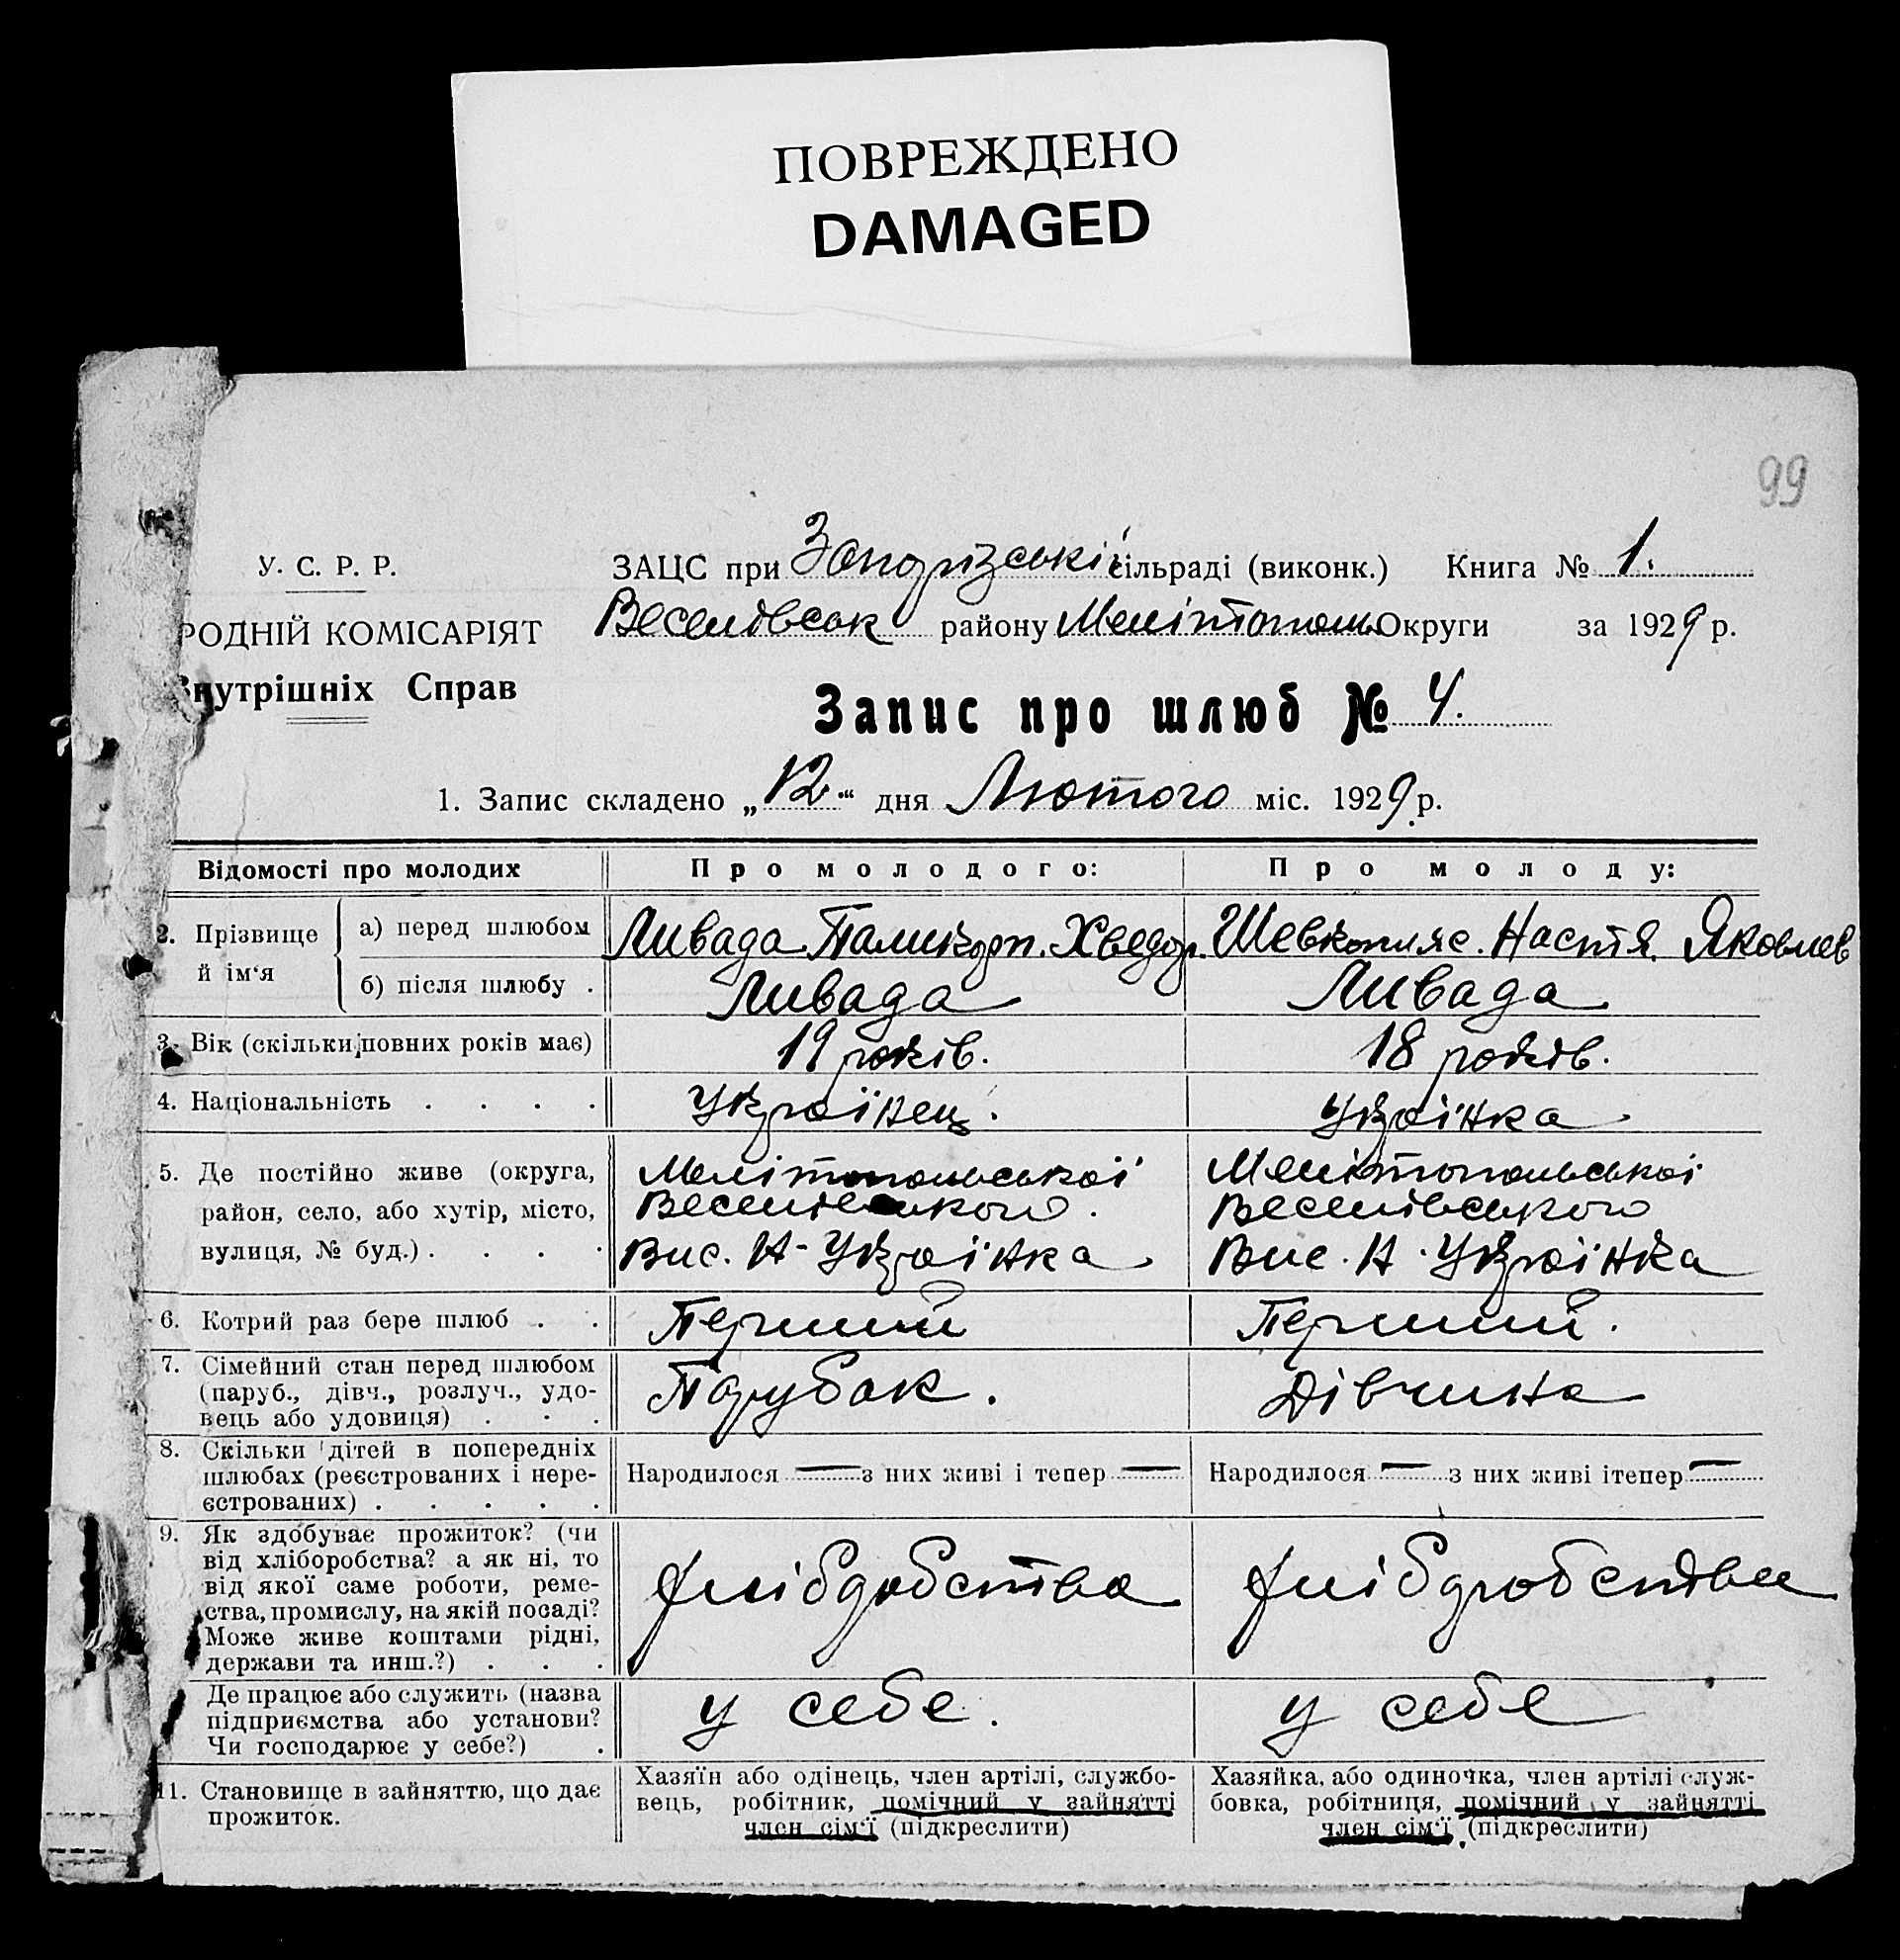 ПОВРЕЖДЕНО
DAMAGED
99
У. С. Р. Р.
РОДНІЙ КОМІСАРІЯТ
Внутрішніх Справ
ЗАЦС при сільраді (виконк.) Книга № 1.
Веселівськ району Мелітополь Округи за 1929 р.
Запис про шлюб № 4.
1. Запис складено „12“ дня Лютого міс. 1929 р.
Відомості про молодих
Про молодого:
Про молоду:
2. Прізвище й ім‘я
а) перед шлюбом
Ливада Хведор.
Шевкопляс. Настя. Яковлев
б) після шлюбу .
Ливада
Ливада
3. Вік (скільки повних років має)
19 років.
18 років.
4. Національність . . . .
Українец.
Українка
5. Де постійно живе (округа,
район, село, або хутір, місто,
вулиця, № буд.) . . . .
Мелітопольської
Веселівського.
Вис. Н-Українка
Мелітопольської
Веселівського
Вис. Н. Українка
6. Котрий раз бере шлюб . .
Перший
Перший.
7. Сімейний стан перед шлюбом
(паруб., дівч., розлуч., удо-
вець або удовиця) . . .
Парубак.
Дівчина
8. Скільки дітей в попередніх
шлюбах (реєстрованих і нере-
єстрованих) . . . . .
Народилося — з них живі і тепер —
Народилося — з них живі ітепер —
9. Як здобуває прожиток? (чи
від хліборобства? а як ні, то
від якої саме роботи, реме-
ства, промислу, на якій посаді?
Може живе коштами рідні,
держави та инш.?) . . .
хлібдробства
хлібдробства
Де працює або служить (назва
підприємства або установи?
Чи господарює у себе?) .
у себе.
у себе
11. Становище в зайняттю, що дає
прожиток.
Хазяїн або одінець, член артілі, службо-
вець, робітник, помічний у зайнятті
член сім‘ї (підкреслити)
Хазяйка, або одиночка, член артілі служ-
бовка, робітниця, помічний у зайнятті
член сім‘ї (підкреслити)